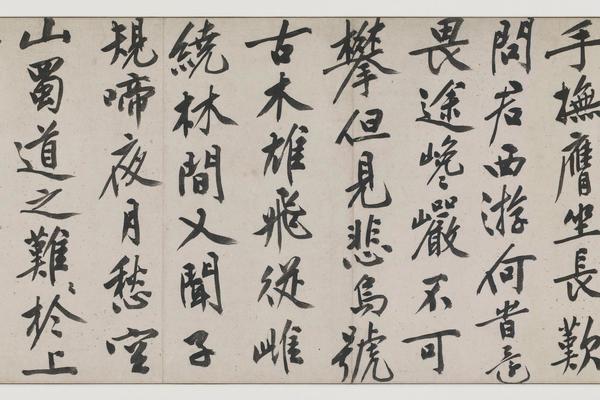 手撫膺坐長歎
問君西游何旹還
畏途巉巖不可
攀但見悲鳥號
古木雄飛從雌
繞林間又聞子
規啼夜月愁空
山蜀道之難〻於上